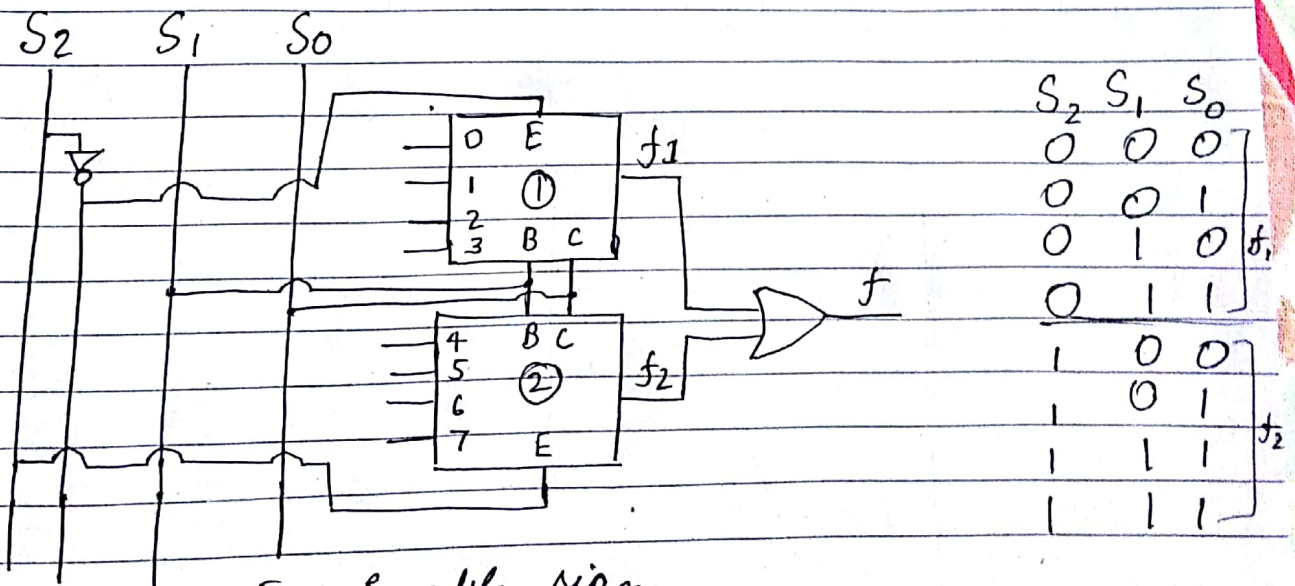 S2 S1 S0
0 E
1 ①
2
3 B C
f1
4 B C
5 ②
6
7 E
f2
f
S2 S1 S0
0 0 0
0 0 1
0 1 0
0 1 1
f1
1 0 0
1 0 1
1 1 1
1 1 1
f2